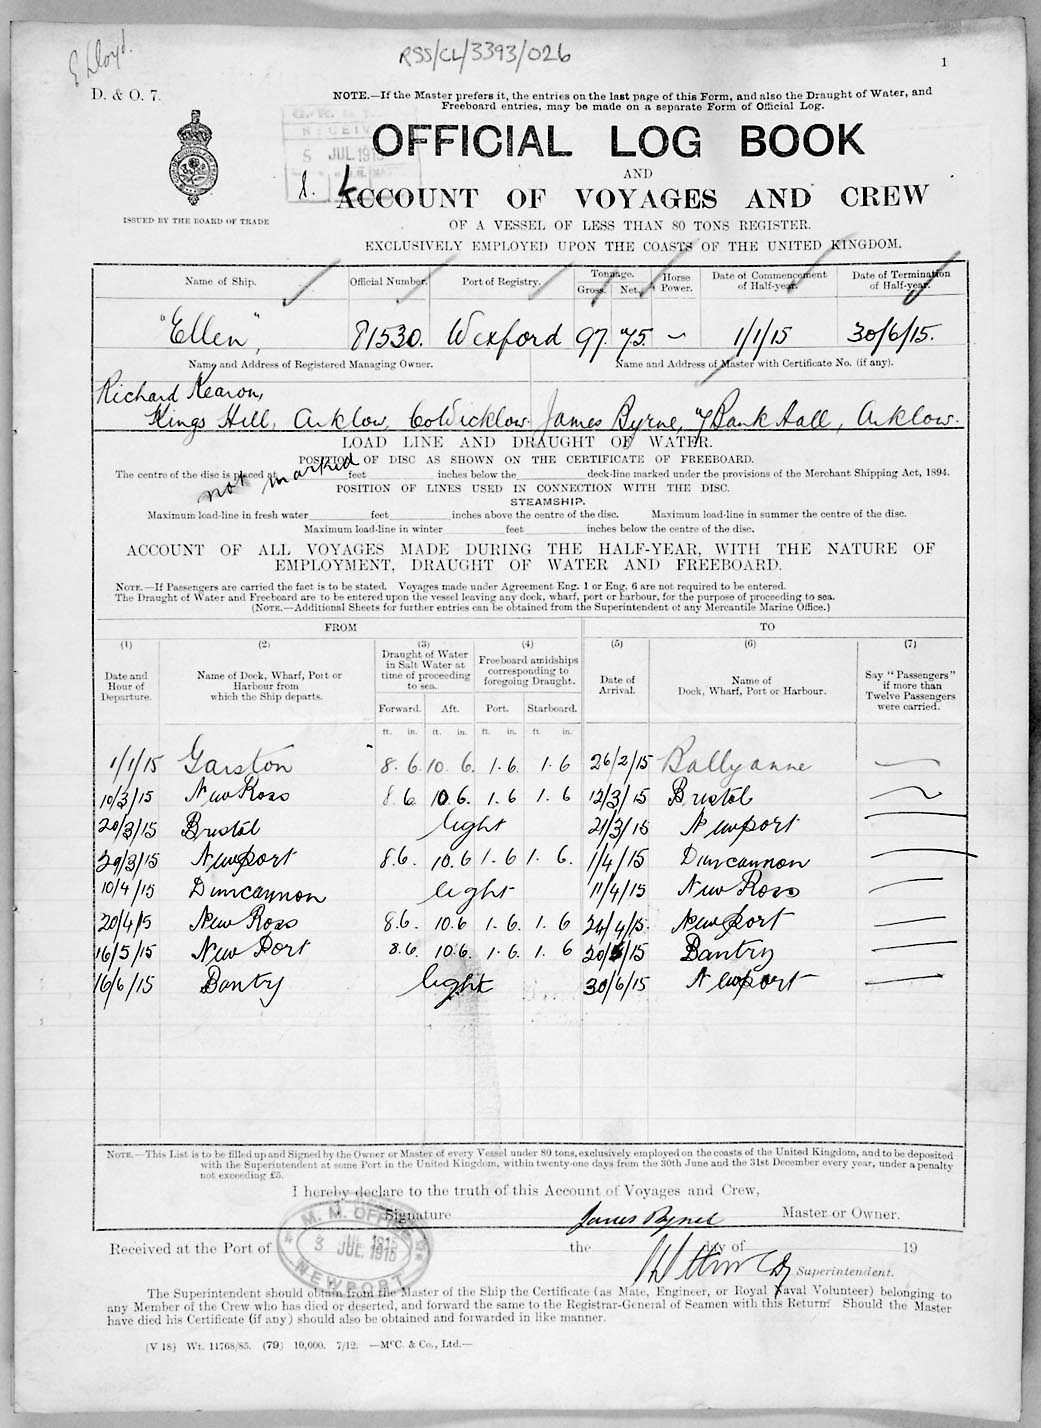 E Lloyd.
RSS/CL/3393/026
1
D. & O. 7.
NOTE.—If the Master prefers it, the entries on the last page of this Form, and also the Draught of Water, and
Freeboard entries, may be made on a separate Form of Official Log.
5 JUL 1915
OFFICIAL LOG BOOK
AND
ACCOUNT OF VOYAGES AND CREW
ISSUED BY THE BOARD OF TRADE
OF A VESSEL OF LESS THAN 80 TONS REGISTER.
EXCLUSIVELY EMPLOYED UPON THE COASTS OF THE UNITED KINGDOM.
Name of Ship. Official Number. Port of Registry. Tonnage. Gross. Net. Horse Power. Date of Commencement of Half-year. Date of Termination of Half-year.
"Ellen", 81530. Wexford 97. 75. — 1/1/15 30/6/15.
Name and Address of Registered Managing Owner. Name and Address of Master with Certificate No. (if any).
Richard Kearon,
Kings Hill, Arklow, Co Wicklow. James Byrne, 7 Bank Hall, Arklow.
LOAD LINE AND DRAUGHT OF WATER.
POSITION OF DISC AS SHOWN ON THE CERTIFICATE OF FREEBOARD.
The centre of the disc is placed at feet inches below the deck-line marked under the provisions of the Merchant Shipping Act, 1894.
not marked
POSITION OF LINES USED IN CONNECTION WITH THE DISC.
STEAMSHIP.
Maximum load-line in fresh water feet inches above the centre of the disc. Maximum load-line in summer the centre of the disc.
Maximum load-line in winter feet inches below the centre of the disc.
ACCOUNT OF ALL VOYAGES MADE DURING THE HALF-YEAR, WITH THE NATURE OF
EMPLOYMENT, DRAUGHT OF WATER AND FREEBOARD.
NOTE.—If Passengers are carried the fact is to be stated. Voyages made under Agreement Eng. 1 or Eng. 6 are not required to be entered.
The Draught of Water and Freeboard are to be entered upon the vessel leaving any dock, wharf, port or harbour, for the purpose of proceeding to sea.
(NOTE.—Additional Sheets for further entries can be obtained from the Superintendent of any Mercantile Marine Office.)
FROM TO
(1) (2) (3) (4) (5) (6) (7)
Date and Hour of Departure. Name of Dock, Wharf, Port or Harbour from which the Ship departs. Draught of Water in Salt Water at time of proceeding to sea. Freeboard amidships corresponding to foregoing Draught. Date of Arrival. Name of Dock, Wharf, Port or Harbour. Say "Passengers" if more than Twelve Passengers were carried.
Forward. Aft. Port. Starboard.
ft. in. ft. in. ft. in. ft. in.
1/1/15 Garston 8.6. 10 6. 1.6. 1.6 26/2/15 Ballyanne —
10/3/15 New Ross 8.6 10.6. 1.6 1.6 12/3/15 Bristol —
20/3/15 Bristol light 21/3/15 Newport —
29/3/15 Newport 8.6. 10.6 1.6 1.6. 1/4/15 Duncannon —
10/4/15 Duncannon light 11/4/15 New Ross —
20/4/15 New Ross 8.6. 10.6 1.6. 1.6 24/4/15. New port —
16/5/15 New Port 8.6. 10.6. 1.6. 1.6 20/5/15 Bantry —
16/6/15 Bantry light 30/6/15 Newport —
NOTE.—This List is to be filled up and Signed by the Owner or Master of every Vessel under 80 tons, exclusively employed on the coasts of the United Kingdom, and to be deposited
with the Superintendent at some Port in the United Kingdom, within twenty-one days from the 30th June and the 31st December every year, under a penalty
not exceeding £5.
I hereby declare to the truth of this Account of Voyages and Crew,
Signature James Byrne Master or Owner.
M. M. OFFICE
3 JUL 1915
NEWPORT
Received at the Port of the day of 19
Superintendent.
The Superintendent should obtain from the Master of the Ship the Certificate (as Mate, Engineer, or Royal Naval Volunteer) belonging to
any Member of the Crew who has died or deserted, and forward the same to the Registrar-General of Seamen with this Return. Should the Master
have died his Certificate (if any) should also be obtained and forwarded in like manner.
(V 18) Wt. 11768/85. (79) 10,000. 7/12. —McC. & Co., Ltd.—